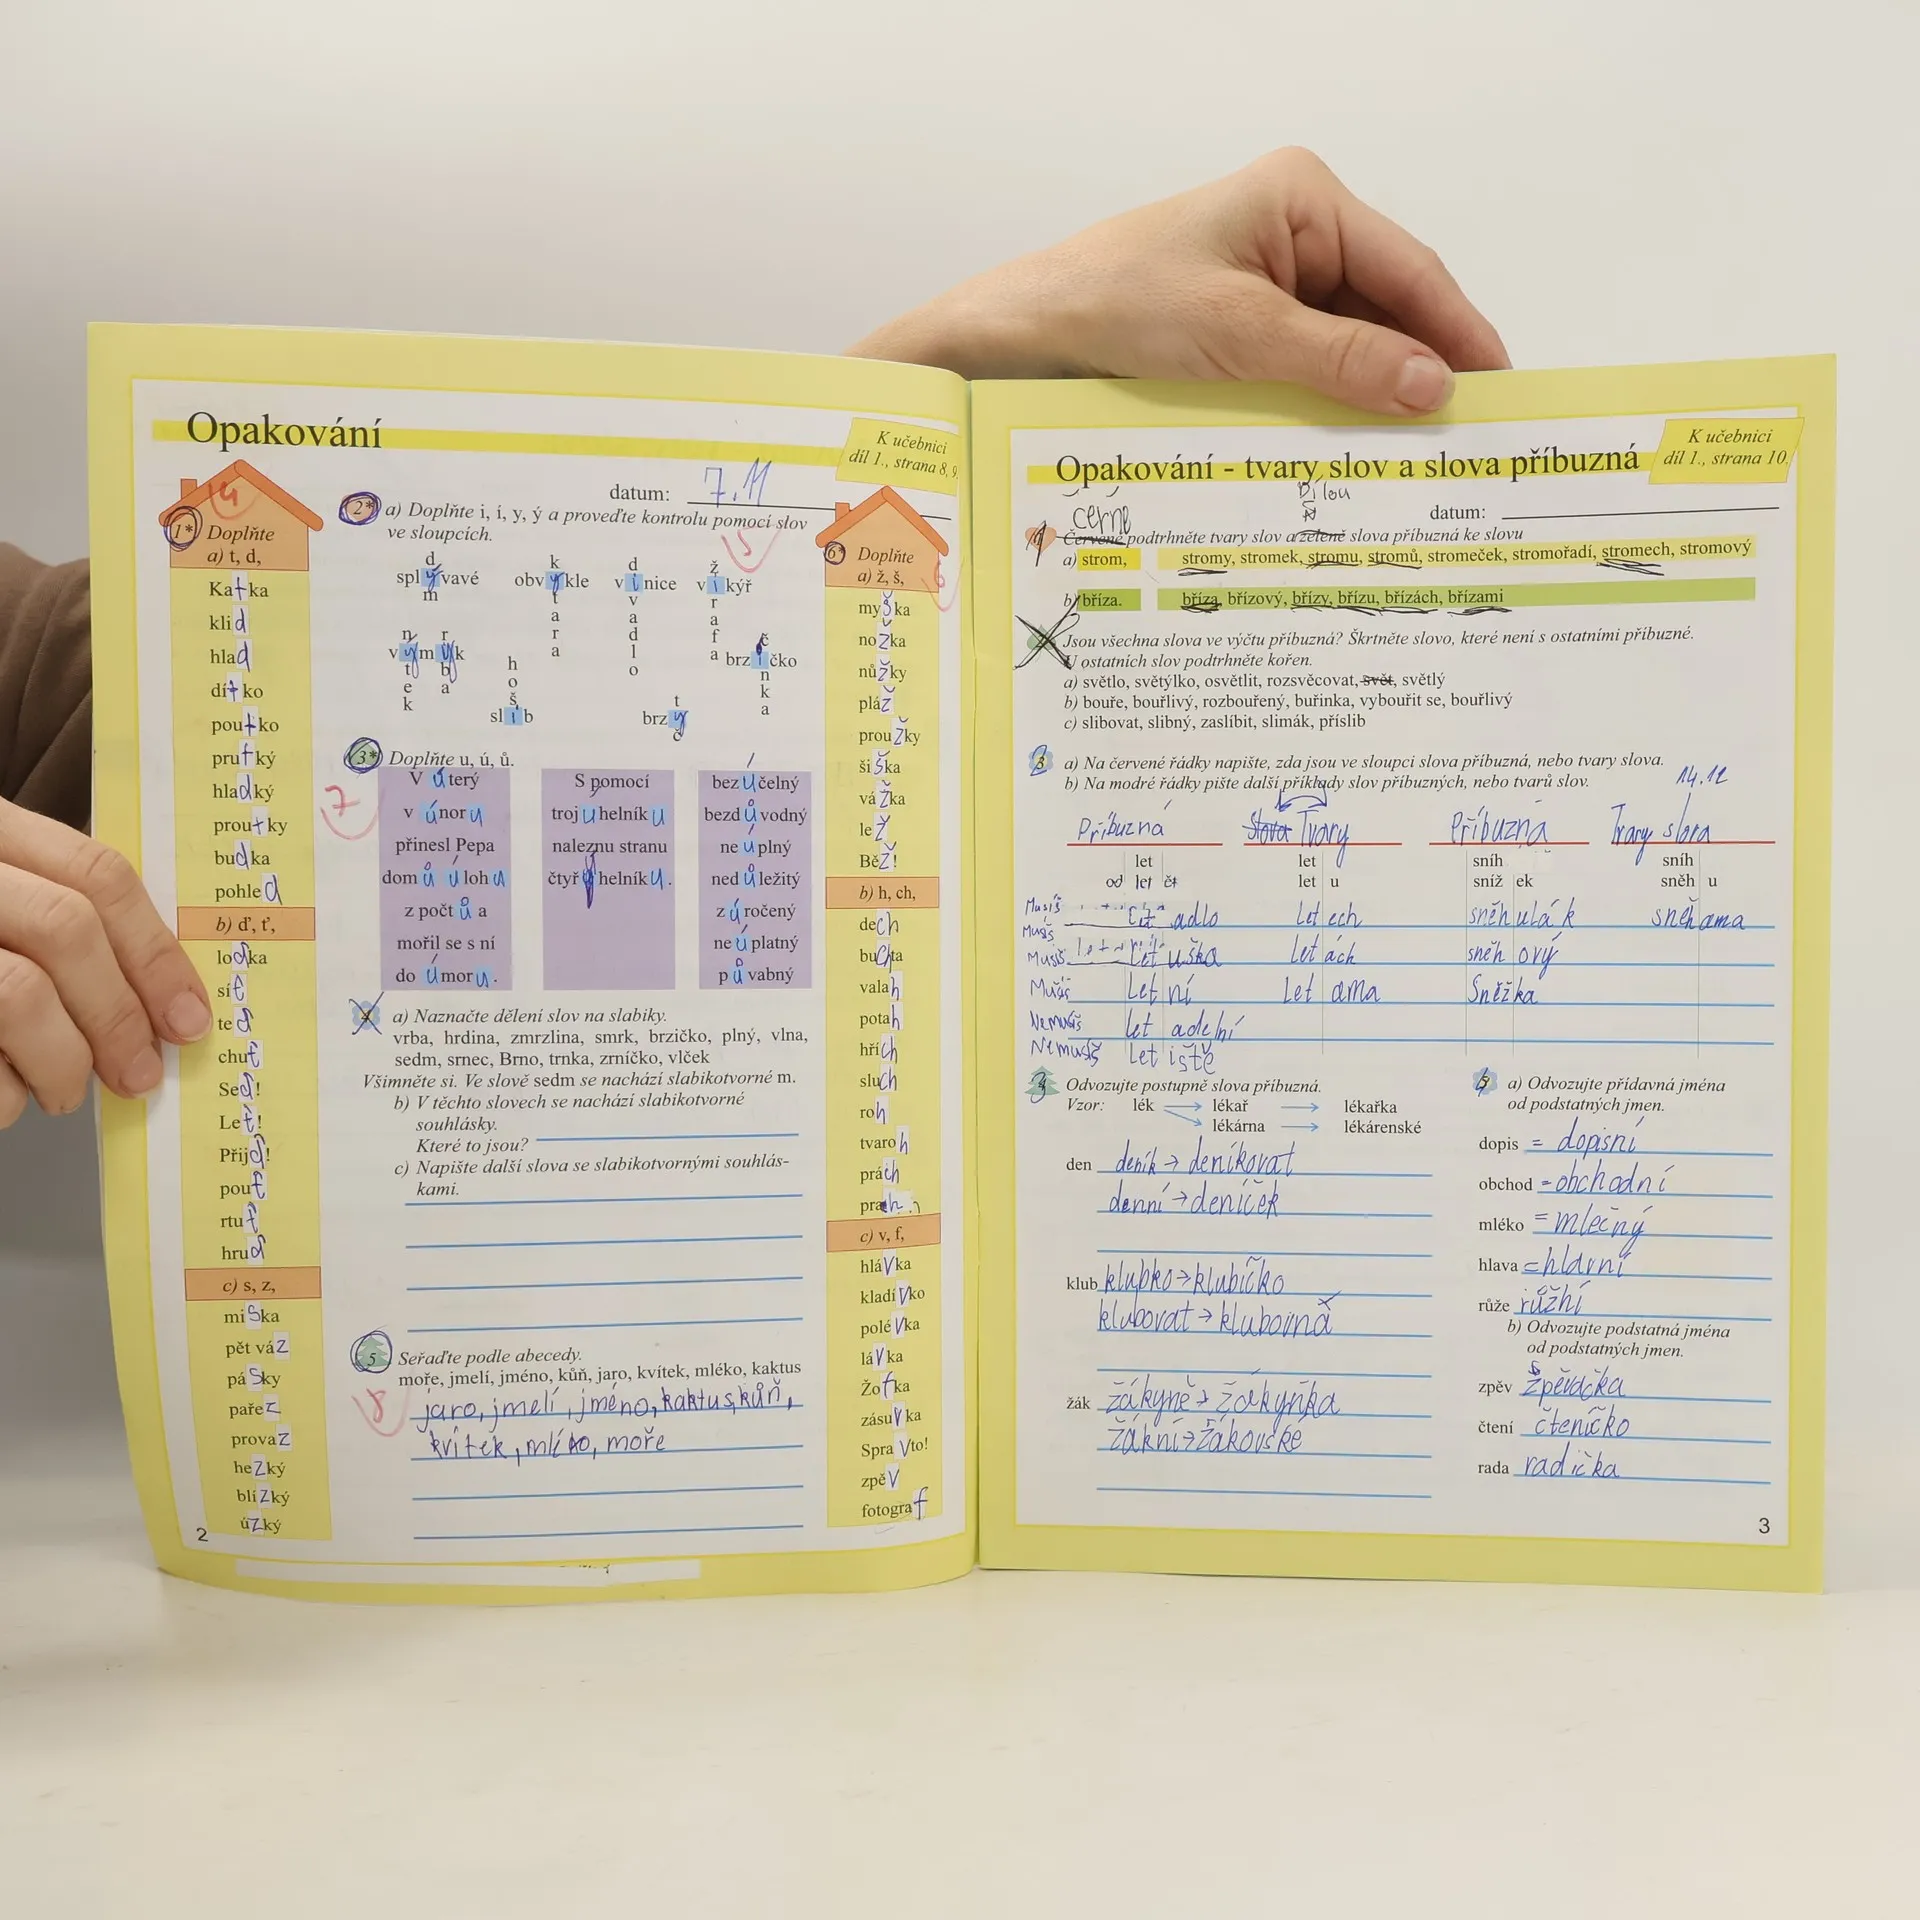 Opakování
K učebnici
díl 1., strana 8, 9.
datum: 7.11
4
1* Doplňte
a) t, d,
Katka
klid
hlad
dítko
poutko
prutký
hladký
proutky
budka
pohled
b) ď, ť,
loďka
síť
teď
chuť
Seď!
Leť!
Přijď!
pouť
rtuť
hruď
c) s, z,
miska
pět váz
pásky
pařez
provaz
hezký
blízký
úzký
2
2* a) Doplňte i, í, y, ý a proveďte kontrolu pomocí slov
ve sloupcích.
5
d k d ž
splývavé obvykle vinice vikýř
m t v r
a a a
r d f
a l a
o
n r h č
výmýk brzičko
t b o n
e a š k
k slib a
t
brzy
č
3* Doplňte u, ú, ů.
7
V úterý
v únoru
přinesl Pepa
domů úlohu
z počtů a
mořil se s ní
do úmoru.
S pomocí
trojuhelníku
naleznu stranu
čtyřyhelníku.
bezúčelný
bezdůvodný
neúplný
nedůležitý
zúročený
neúplatný
půvabný
4 a) Naznačte dělení slov na slabiky.
vrba, hrdina, zmrzlina, smrk, brzičko, plný, vlna,
sedm, srnec, Brno, trnka, zrníčko, vlček
Všimněte si. Ve slově sedm se nachází slabikotvorné m.
b) V těchto slovech se nachází slabikotvorné
souhlásky.
Které to jsou?
c) Napište další slova se slabikotvornými souhlás-
kami.
5 Seřaďte podle abecedy.
moře, jmelí, jméno, kůň, jaro, kvítek, mléko, kaktus
8
jaro, jmelí, jméno, kaktus, kůň,
kvítek, mléko, moře
6* Doplňte
6
a) ž, š,
myška
nožka
nůžky
pláž
proužky
šiška
vážka
lež
Běž!
b) h, ch,
dech
buchta
valah
potah
hřích
sluch
roh
tvaroh
prách
prach
c) v, f,
hlávka
kladívko
polévka
lávka
Žofka
zásuvka
Spravto!
zpěv
fotograf
Opakování - tvary slov a slova příbuzná
K učebnici
díl 1., strana 10.
datum:
černě
Bílou
1 Červeně podtrhněte tvary slov a zeleně slova příbuzná ke slovu
a) strom, stromy, stromek, stromu, stromů, stromeček, stromořadí, stromech, stromový
b) bříza. bříza, břízový, břízy, břízu, břízách, břízami
Jsou všechna slova ve výčtu příbuzná? Škrtněte slovo, které není s ostatními příbuzné.
U ostatních slov podtrhněte kořen.
a) světlo, světýlko, osvětlit, rozsvěcovat, svět, světlý
b) bouře, bouřlivý, rozbouřený, buřinka, vybouřit se, bouřlivý
c) slibovat, slibný, zaslíbit, slimák, příslib
3 a) Na červené řádky napište, zda jsou ve sloupci slova příbuzná, nebo tvary slova.
b) Na modré řádky pište další příklady slov příbuzných, nebo tvarů slov.
14.11
Příbuzná Slova Tvary Příbuzná Tvary slova
let let sníh sníh
od letět let u sníž ek sněh u
Musíš Letadlo Letech sněhulák sněhama
Musíš
Musíš Letuška Letách sněhový
Musíš Letní Letama Sněžka
Nemusíš Letadelní
Nemusíš Letiště
Odvozujte postupně slova příbuzná.
Vzor: lék lékař lékařka
lékárna lékárenské
den deník → deníkovat
denní → deníček
klub klubko → klubíčko
klubovat → klubovna
žák žákyně → žákyňka
žákní → žákovské
a) Odvozujte přídavná jména
od podstatných jmen.
dopis = dopisní
obchod = obchodní
mléko = mléčný
hlava = hlavní
růže růžní
b) Odvozujte podstatná jména
od podstatných jmen.
zpěv zpěvačka
čtení čteníčko
rada radička
3